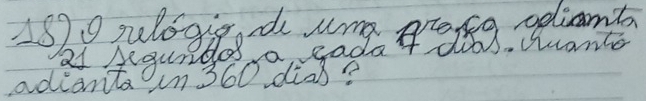 18) O relógio, de uma praça adianta
21 segundos a cada 7 dias. Quanto
adianta in 360 dias?